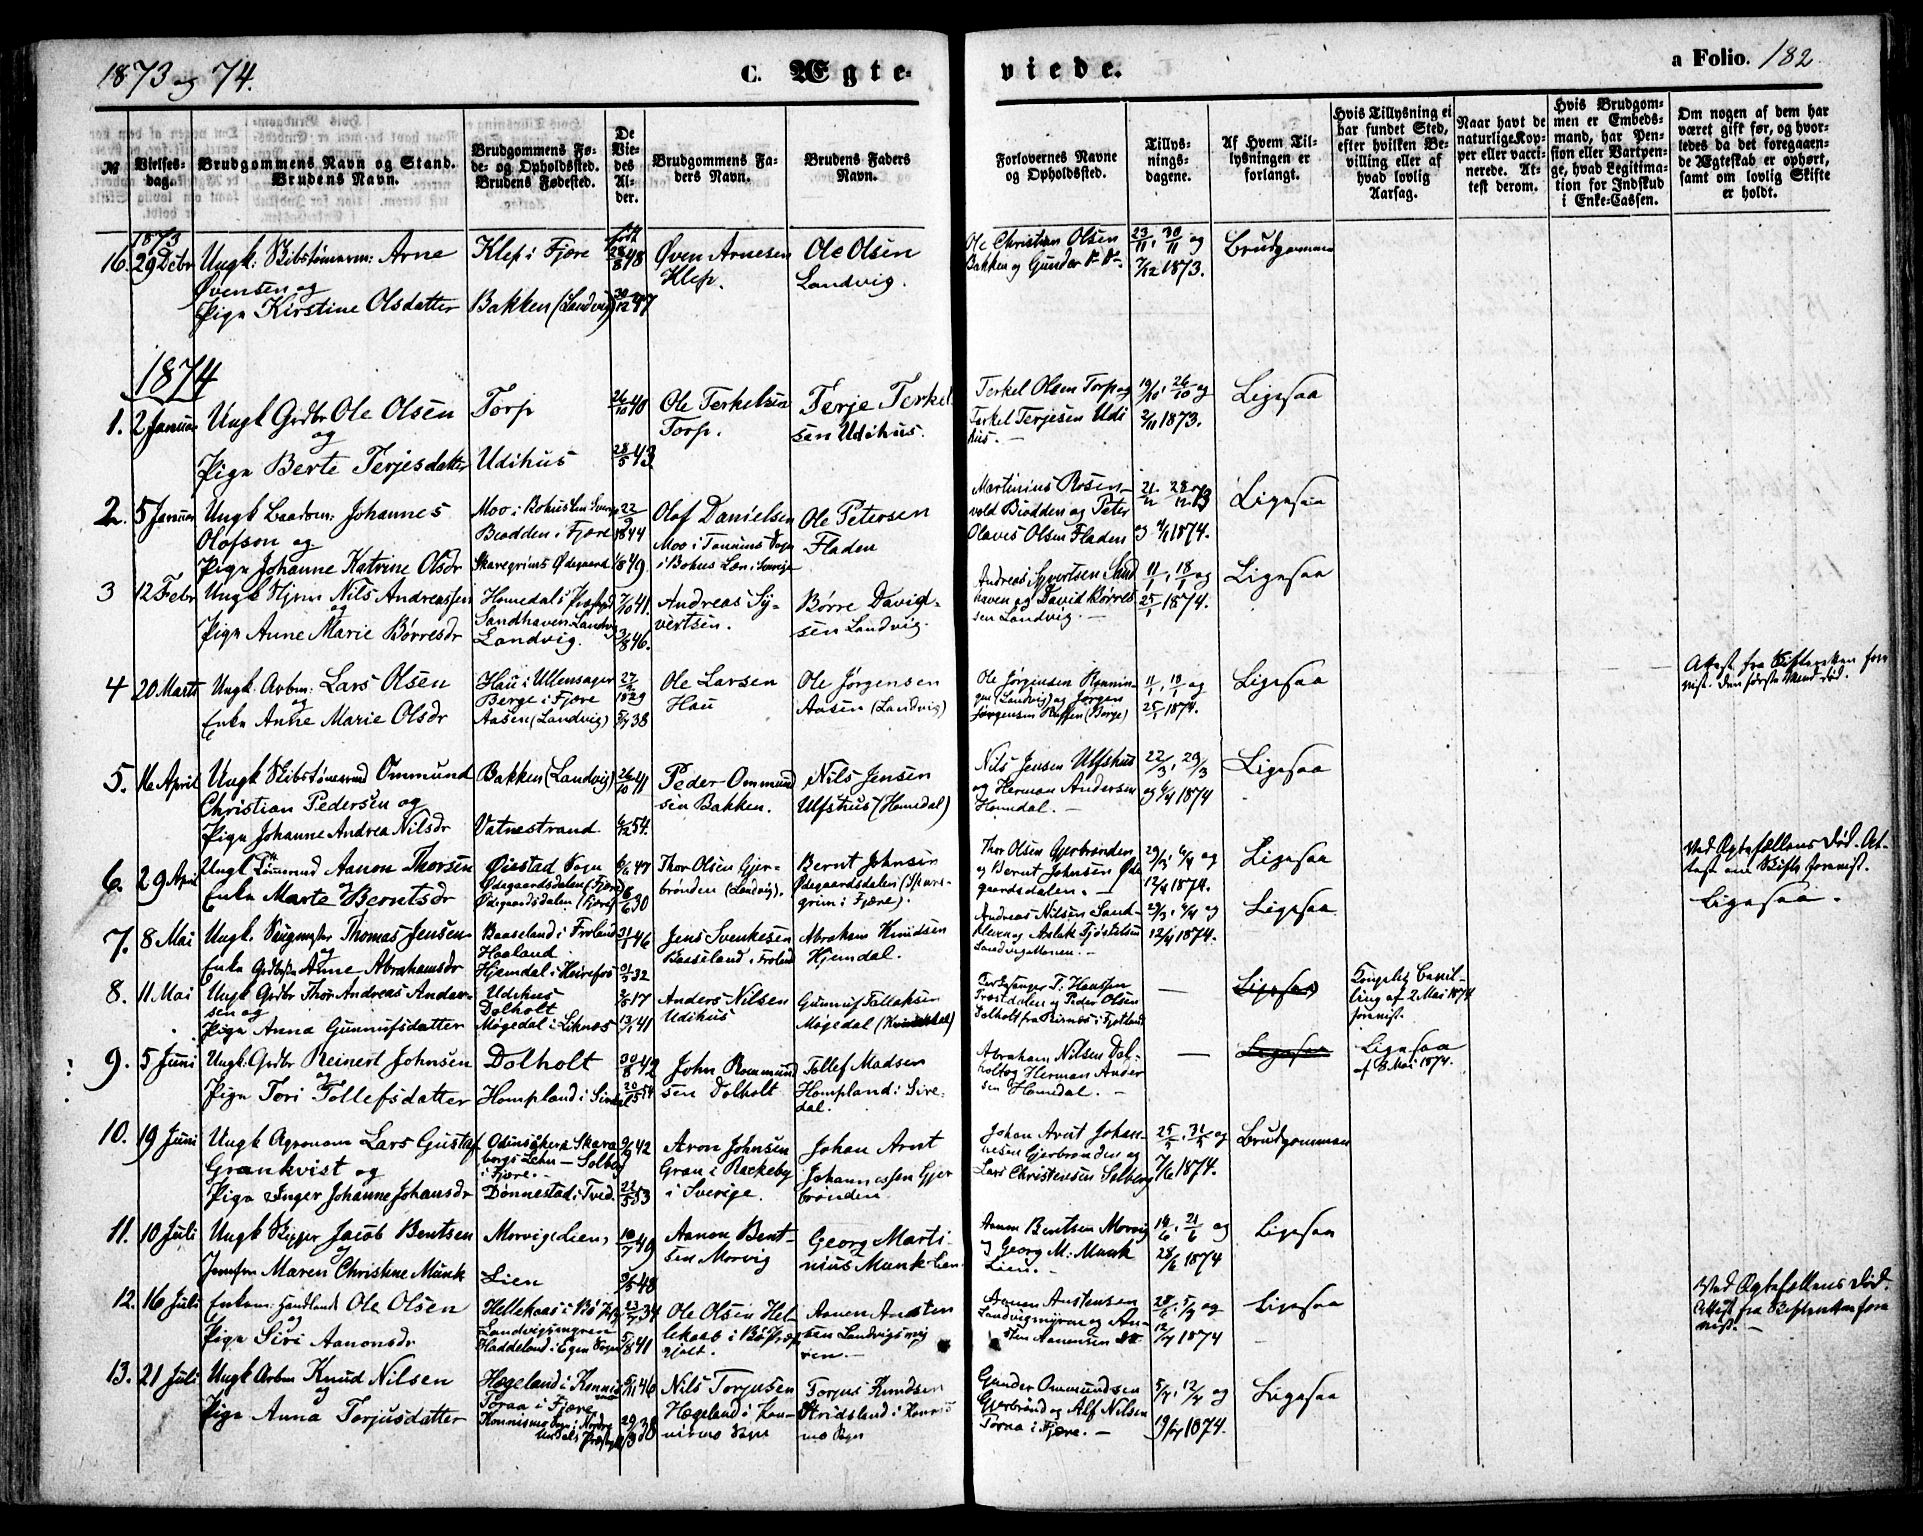 1873 og 74.
C. Ægte-
viede.
a Folio. 182
№
Vielses-
dag.
Brudgommens Navn og Stand.
Brudens Navn.
Brudgommens Fø-
de- og Opholdssted.
Brudens Fødested.
De
Vie-
des
Al-
der.
Brudgommens Fa-
ders Navn.
Brudens Faders
Navn.
Forlovernes Navne
og Opholdssted.
Tillys-
nings-
dagene.
Af Hvem Til-
lysningen er
forlangt.
Hvis Tillysning ei
har fundet Sted,
efter hvilken Be-
villing eller af
hvad lovlig
Aarsag.
Naar havt de
naturlige Kop-
per eller vacci-
nerede. At-
test derom.
Hvis Brudgom-
men er Embeds-
mand, har Pen-
sion eller Vartpen-
ge, hvad Legitima-
tion for Indskud
i Enke-Cassen.
Om nogen af dem har
været gift før, og hvor-
ledes da det foregaaen-
de Ægteskab er ophørt,
samt om lovlig Skifte
er holdt.
1873
16. 29 Debr Ungk: Skibstømerm: Arne
Øvensen og
Pige Kirstine Olsdatter
Klep i Fjære
Bakken (Landvig)
født 28/8 48
30/12 47
Øven Arnesen
Klep.
Ole Olsen
Landvig.
Ole Christian Olsen
Bakken og Gunder
23/11, 30/11 og
7/12 1873.
Brudgommen
1874
1. 2 Januar Ungk Grdbr Ole Olsen
og
Pige Berte Terjesdatter
Torp
Udihus
26/10 40
28/5 43
Ole Terkelsen
Torp.
Terje Terkel-
sen Udihus.
Terkel Olsen Torp og
Terkel Terjesen Udi
hus. -
19/10, 26/10 og
2/11 1873.
Ligesaa
2. 5 Januar Ungk Baadsm: Johannes
Olofson og
Pige Johanne Katrine Olsdr
Moo i Bohus Len
Brodden i Fjære
Skaregrims Ødegaard
22/9 1844
1/8 49.
Olof Danielsen
Moo i Tanums Sogn
i Bohus Læn i Sverige
Ole Petersen
Fladen
Martinius Rosen-
vold Brodden og Peter
Olaves Olsen Fladen
21/12, 28/12 73
og 4/1 1874.
Ligesaa
3 12 Febr Ungk Nils Andreassen
og
Pige Anne Marie Børresdr
Homedals Præstgd
Sandhaven Landvig
Landvig.
7/10 41.
3/8 46.
Andreas Sy-
vertsen.
Børre David-
sen Landvig.
Andreas Syvertsen Sand
haven og David Børre-
sen Landvig. -
11/1, 18/1 og
25/1 1874.
Ligesaa
4 20 Marts Ungk. Arbm: Lars Olsen
og
Enke Anne Marie Olsdr
Hau i Ullensager
Berge i Fjære
Aasen (Landvig)
1829
5/7 38
Ole Larsen
Hau
Ole Jørgensen
Aasen (Landvig)
Ole Jørgensen Rønnin-
gen (Landvig) og Jørgen
Jørgensen (Berge)
11/1, 18/1 og
25/1 1874.
Ligesaa
Attest fra Skifteretten fore
vist. Den første Mand død.
5. 16 April Ungk Skibstømermd Ommund
Christian Pedersen og
Pige Johanne Andrea Nilsdr
Bakken (Landvig)
Vatnestrand.
26/10 41
6/12 54.
Peder Ommund
sen Bakken.
Nils Jensen
Ulfshus (Homedal)
Nils Jensen Ulfshus
og Herman Andersen
Homdal. -
22/3, 29/3
og 6/4 1874
Ligesaa
6. 29 April Ungk Tømermd Aanon Thorsen
og
Enke Marte Berntsdr
Øiestad Sogn
Ødegaardsdalen (Fjære)
Ødegaardsdalen (Fjære)
6/1 47
8/6 30
Thor Olsen Gjer-
brønden (Landvig).
Bernt Johnsen
Ødegaardsdalen (Skare-
grim i Fjære).
Thor Olsen Gjerbrønden
og Bernt Johnsen Øde
gaardsdalen. -
29/3, 6/4 og
12/4 1874.
Ligesaa
Ved Ægtefællens Død. At-
test om Skifte forevist.
7. 8 Mai Ungk. Thomas Jensen
og
Enke Anne Abrahamsdr
Baaseland i Froland
Haaland
Hjemdal i Heirefos
31/1 46
31/3 32
Jens Svenkesen
Baaseland i Froland
Abraham Knudsen
Hjemdal.
Andreas Nilsen Sand-
kleven og Aslak Tjøstelsen
Landvigmonen. -
29/3, 6/4 og
12/4 1874.
Ligesaa
Ligesaa.
8. 11 Mai Ungk Grdbr Thor Andreas Ander-
sen og
Pige Anna Gunnufsdatter
Udihus
Dolholt
Møgedal i Liknes
2/8 17
13/1 41
Anders Nilsen
Udihus
Gunnuf Tollaksen
Møgedal (Kvinesdal)
Kirkesanger T. Hanssen
Frostdalen og Peder Olsen
Solholt fra Birnes i Fjotland
—
Ligesaa
Kongelig Bevil-
ling af 2 Mai 1874
forevist.
9. 5 Juni Ungk. Grdbr Reinert Johnsen
og
Pige Tori Tollefsdatter
Dolholt
Hompland i Siredal
30/8 42
20/5 54
John Rommund
sen Dolholt
Tollef Madsen
Hompland i Sire-
dal.
Abraham Nilsen Dol-
holt og Herman Ander
sen Homdal. -
—
Ligesaa
Ligesaa
af 8 Mai 1874.
10. 19 Juni Ungk Agronom Lars Gustaf
Grankvist og
Pige Inger Johanne Johansdr
Odensåkers Skara
borgs Lehn - Solberg
i Fjære. -
Dønnestad i Tved.
9/9 42
22/5 53
Aron Johnsen
Gran i Rackeby
i Sverige.
Johan Arnt
Johannessen Gjer
brønden
Johan Arnt Johan-
nesen Gjerbrønden og
Lars Christensen Solberg
25/5, 31/5 og
7/6 1874.
Brudgommen
11. 10 Juli Ungk Skipper Jacob Bentsen
og
Jomfru Maren Christine Munk
Morvigedien,
Lien
10/7 49
9/5 48
Aanon Bent-
sen Morvig
Georg Marti-
nius Munk Lien
Aanon Bentsen Morvig
og Georg M: Munk
Lien. -
14/6, 21/6 og
28/6 1874
Ligesaa
12. 16 Juli Enkem: Handlende Ole Olsen
og
Pige Siri Aanonsdr
Hellekaas i Bø
Landvigsmyren
Haddeland i Egen Sogn
23/7 34
5/8 41
Ole Olsen Hel-
lekaas i Bø Præste
gjelt.
Aanen Austen
sen Landvigsmy
ren. -
Aanon Austensen
Landvigmyren og Au-
sten Aanensen
28/6, 5/7 og
12/7 1874
Ligesaa
Ved Ægtefællens Død.
Attest fra Skifteretten fore
vist. -
13. 21 Juli Ungk Arbm Knud Nilsen
og
Pige Anna Torjusdatter
Hægeland i Konnis
mo
Toraa i Fjære
Konnismo Sogn i Nordre
Undals Præstgjl
5/11 46
29/3 38
Nils Torjusen
Hægeland i Kon-
nismo Sogn
Torjus Knudsen
Stridsland i Konnis
mo Sogn
Gunder Ommundsen
Gjerbrønd og Alf Nilsen
Toraa i Fjære. -
5/7, 12/7 og
19/7 1874.
Ligesaa